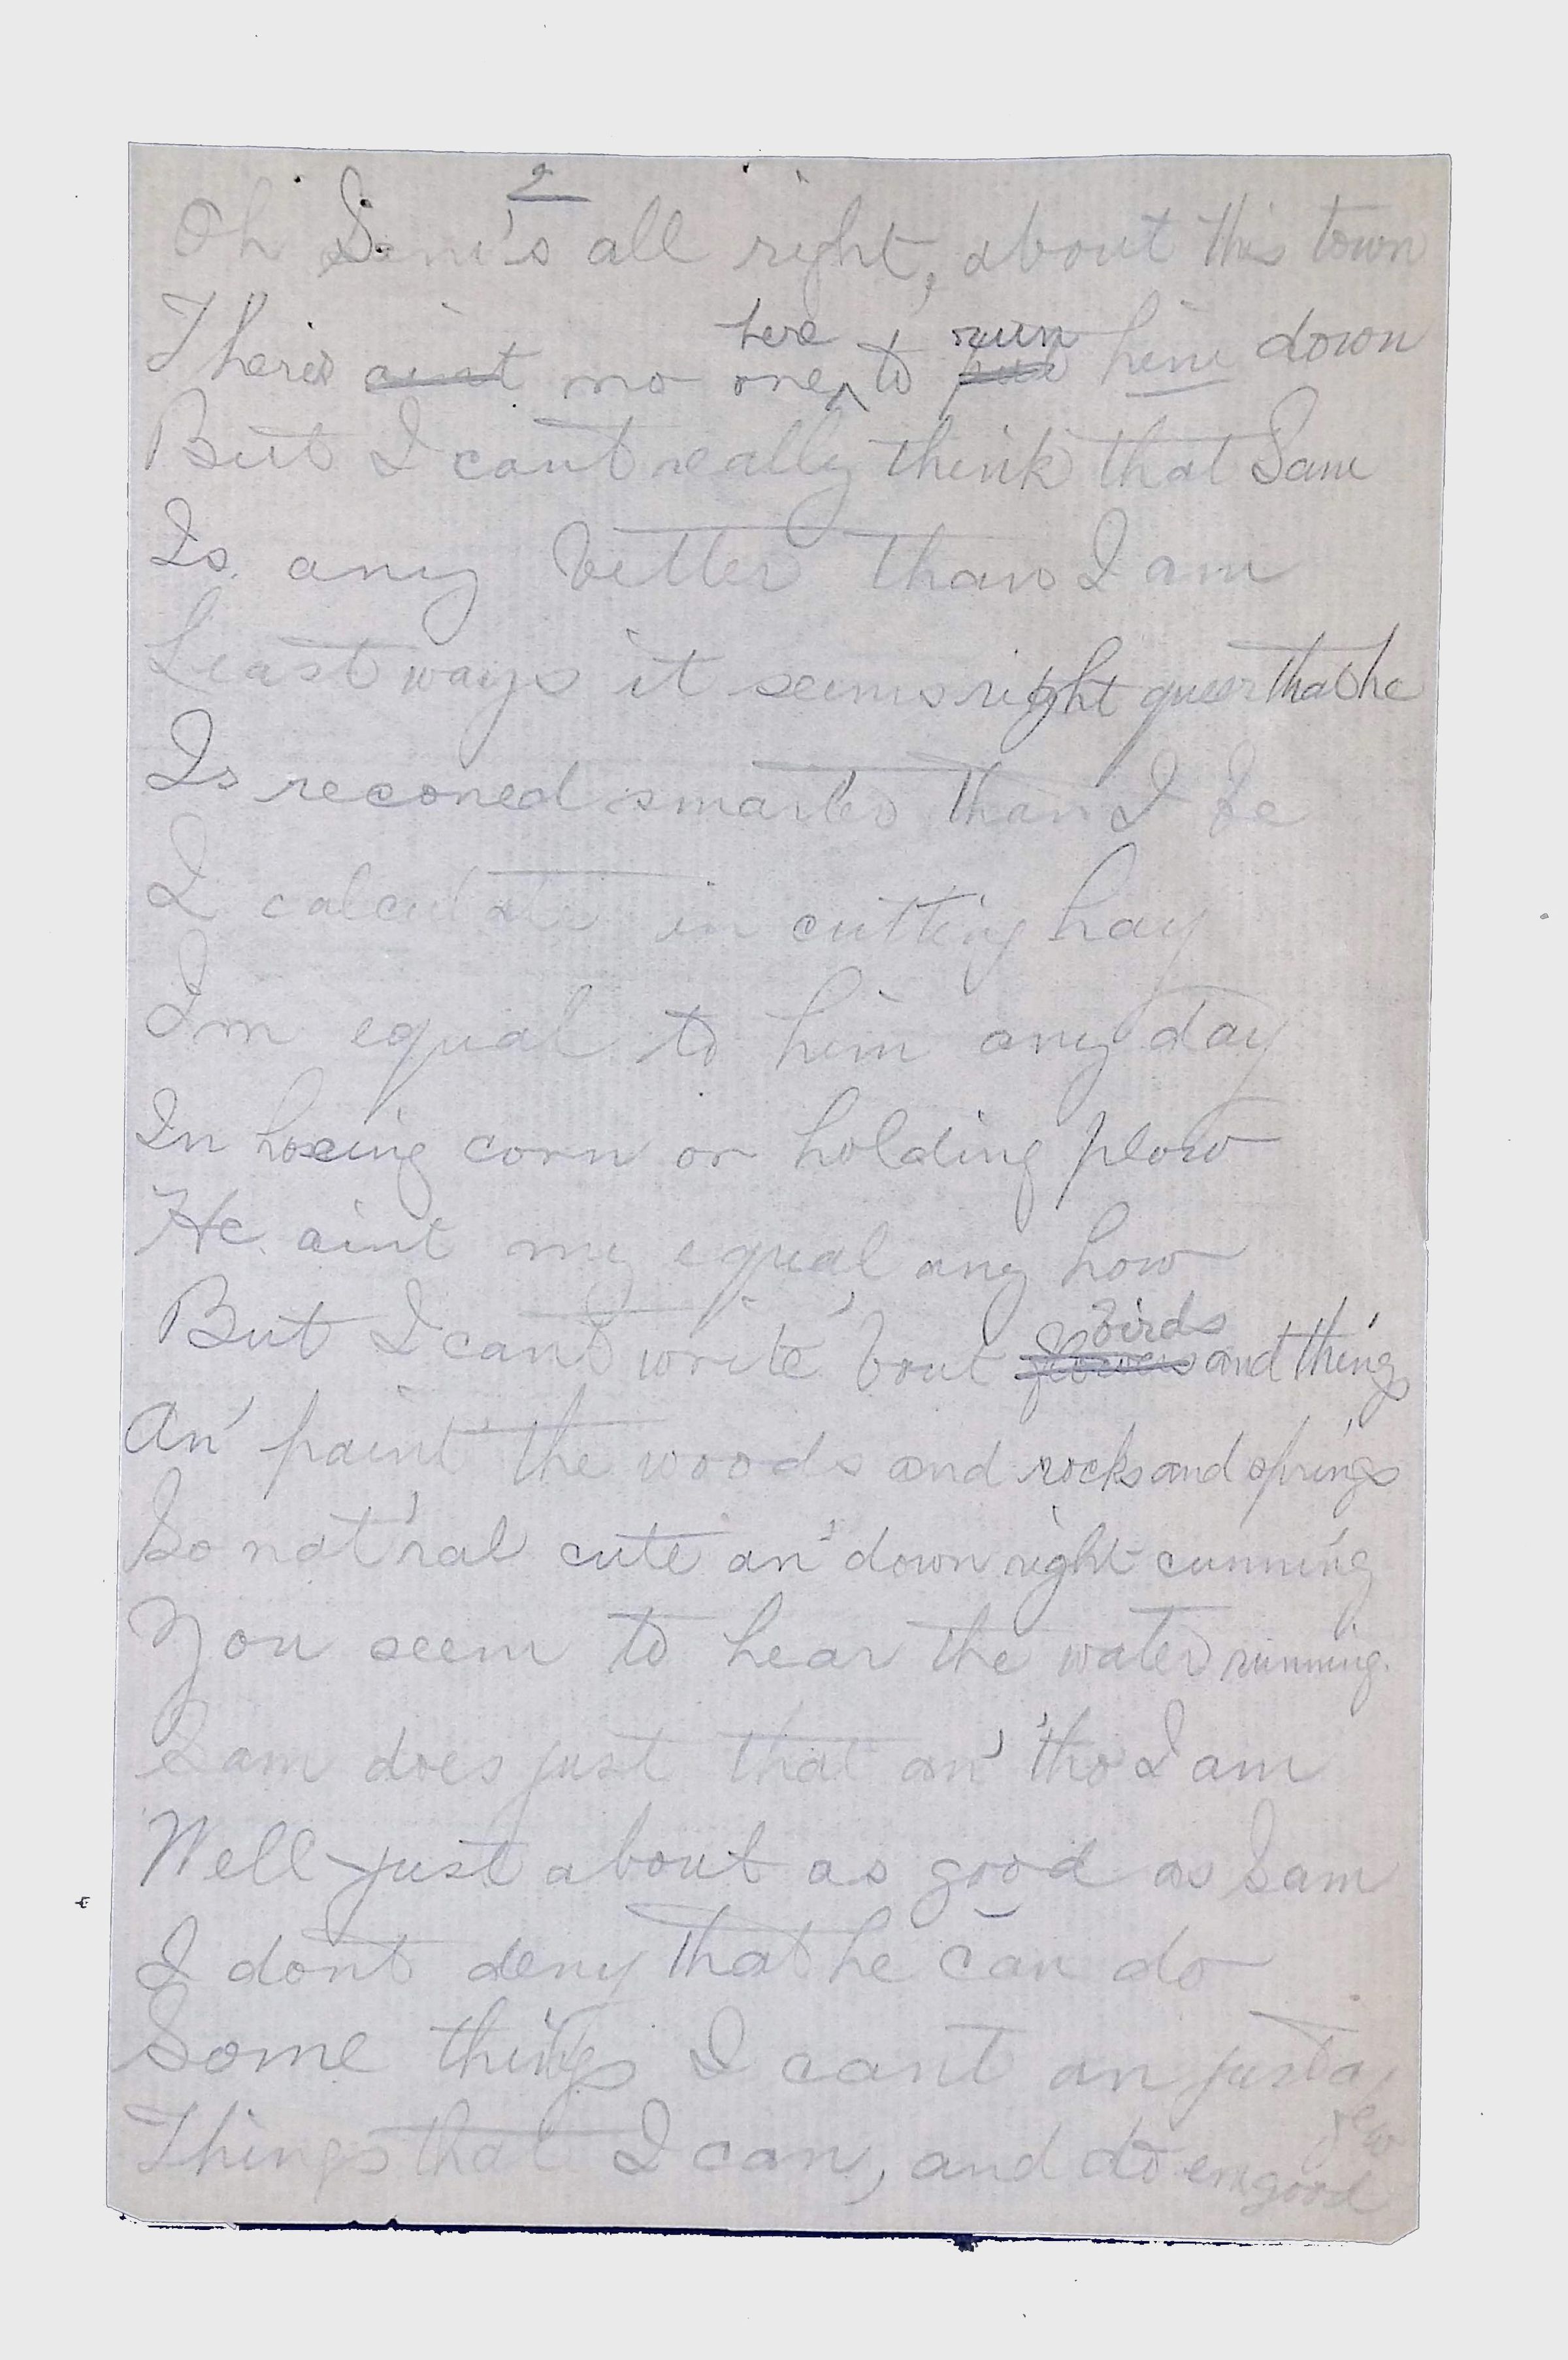 2
Oh Sam's all right, about this town
There's aint no one here to put run him down
But I cant really think that Sam
Is any better than I am
Least ways it seems right queer that he
Is reconed smarter than I be
I calculate in cutting hay
I'm equal to him any day
In hoeing corn or holding plow
He aint my equal any how
But I can't write 'bout flowers birds and things
An' paint the woods and rocks and springs
So nat'ral cute an' down right cunning
You seem to hear the water running.
Sam does just that an' tho' I am
Well just about as good as Sam
I dont deny that he can do
Some things I cant an just a few
Things that I can, and do em good